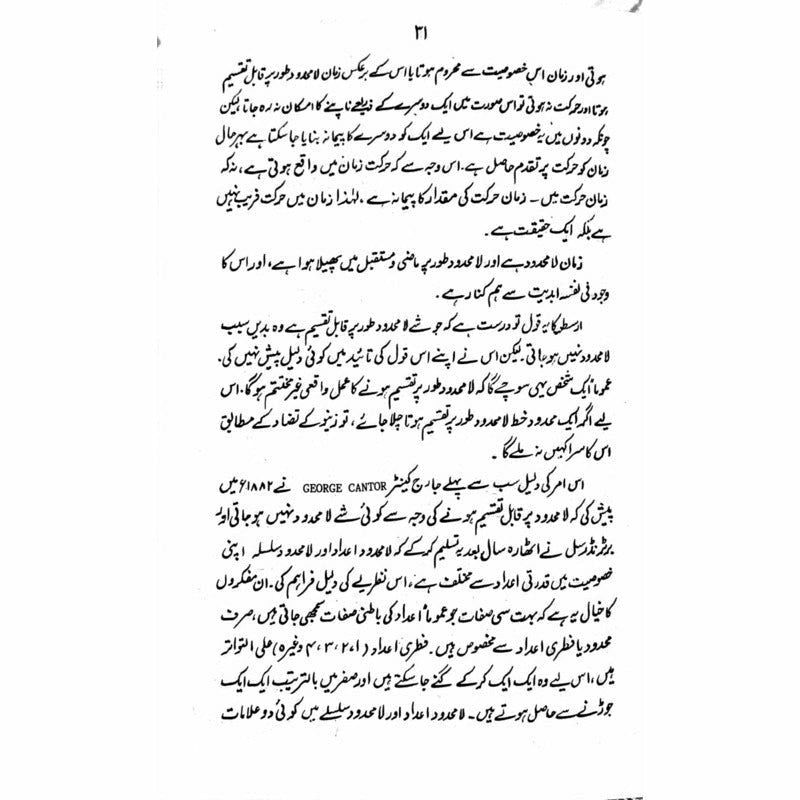 ۳۱
ہوتی اور زمان اس خصوصیت سے محروم ہوتا یا اس کے برعکس زمان لامحدود طور پر قابل تقسیم
ہوتا اور حرکت نہ ہوتی تو اس صورت میں ایک دوسرے کے ذریعے ناپنے کا امکان نہ رہ جاتا لیکن
چونکہ دونوں میں یہ خصوصیت ہے اس لیے ایک کو دوسرے کا پیمانہ بنایا جا سکتا ہے بہرحال
زمان کو حرکت پر تقدم حاصل ہے۔ اس وجہ سے کہ حرکت زمان میں واقع ہوتی ہے، نہ کہ
زمان حرکت میں ۔ زمان حرکت کی مقدار کا پیمانہ ہے ، لہٰذا زمان میں حرکت فریب نہیں
ہے بلکہ ایک حقیقت ہے ۔
زمان لامحدود ہے اور لامحدود طور پر ماضی و مستقبل میں پھیلا ہوا ہے، اور اس کا
وجود فی نفسہ ابدیت سے ہم کنار ہے ۔
ارسطو کا یہ قول تو درست ہے کہ جو شے لامحدود طور پر قابل تقسیم ہے وہ بدیں سبب
لامحدود نہیں ہو جاتی ۔ لیکن اس نے اپنے اس قول کی تائید میں کوئی دلیل پیش نہیں کی ۔
عموماً ایک شخص یہی سوچے گا کہ لامحدود طور پر تقسیم ہونے کا عمل واقعی غیر مختتم ہو گا ۔ اس
لیے اگر ایک محدود خط لامحدود طور پر تقسیم ہوتا چلا جائے ، تو زینو کے تضاد کے مطابق
اس کا سرا کہیں نہ ملے گا ۔
اس امر کی دلیل سب سے پہلے جارج کینٹر GEORGE CANTOR نے ۱۸۸۲ء میں
پیش کی کہ لامحدود پر قابل تقسیم ہونے کی وجہ سے کوئی شے لامحدود نہیں ہو جاتی اور
برٹرنڈرسل نے اٹھارہ سال بعد یہ تسلیم کر کے کہ لامحدود اعداد اور لامحدود سلسلہ اپنی
خصوصیت میں قدرتی اعداد سے مختلف ہے ، اس نظریے کی دلیل فراہم کی ۔ ان مفکروں
کا خیال یہ ہے کہ بہت سی صفات جو عموماً اعداد کی باطنی صفات سمجھی جاتی ہیں ، صرف
محدود یا فطری اعداد سے مخصوص ہیں ۔ فطری اعداد (۱، ۲، ۳، ۴ وغیرہ) علی التواتر
ہیں ، اس لیے وہ ایک ایک کر کے گنے جا سکتے ہیں اور صفر میں بالترتیب ایک ایک
جوڑنے سے حاصل ہوتے ہیں ۔ لامحدود اعداد اور لامحدود سلسلے میں کوئی دو علامات